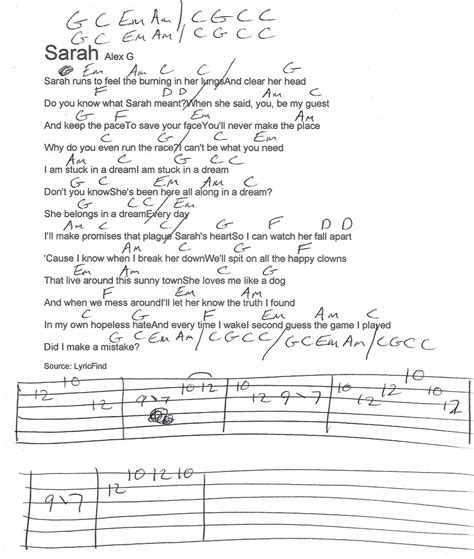 G C Em Am / C G C C
G C Em Am / C G C C
Sarah Alex G
Em Am C C G
Sarah runs to feel the burning in her lungsAnd clear her head
F D D Am C
Do you know what Sarah meant?When she said, you, be my guest
G F Em Am
And keep the paceTo save your faceYou'll never make the place
C G C Em
Why do you even run the race?I can't be what you need
Am C G C C
I am stuck in a dreamI am stuck in a dream
G C Em Am C
Don't you knowShe's been here all along in a dream?
G C C / Em
She belongs in a dreamEvery day
Am C C G F D D
I'll make promises that plague Sarah's heartSo I can watch her fall apart
Am C G F
'Cause I know when I break her downWe'll spit on all the happy clowns
Em Am C G
That live around this sunny townShe loves me like a dog
F Em Am
And when we mess aroundI'll let her know the truth I found
C G F Em Am C
In my own hopeless hateAnd every time I wakeI second guess the game I played
G C Em Am / C G C C / G C Em Am / C G C C
Did I make a mistake?
Source: LyricFind
12 10 12 9 7 10 12 10 12 9 7 10 12 12 10 10 12
9 7 12 10 12 10